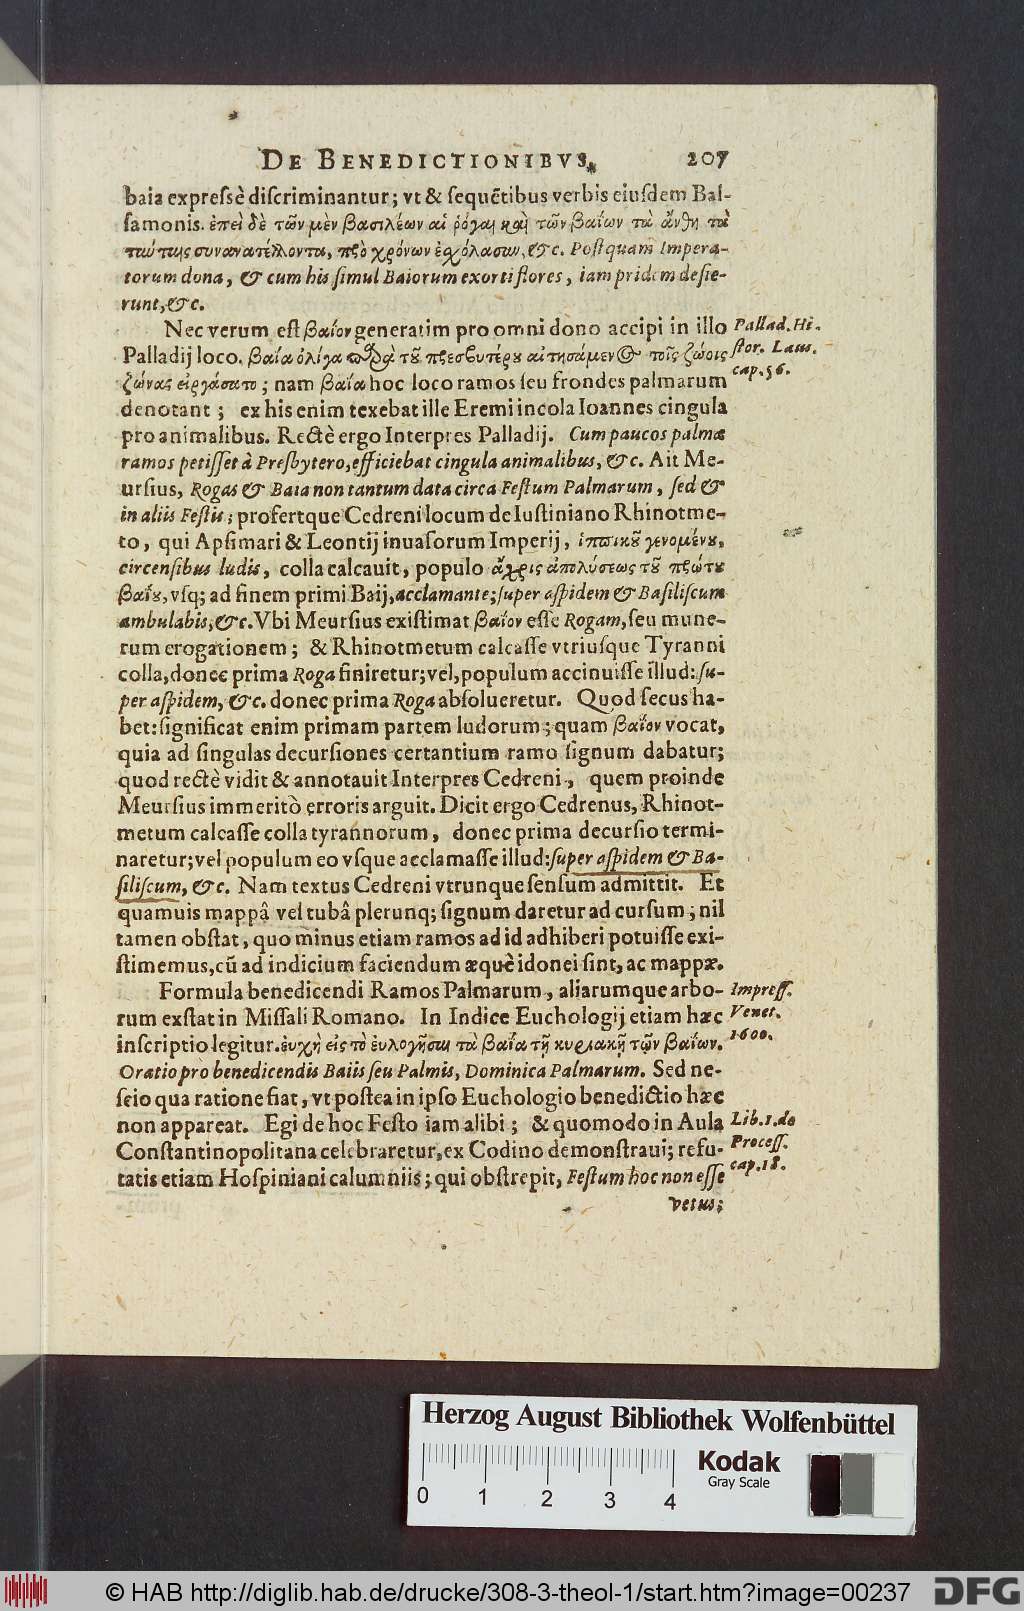 DE BENEDICTIONIBVS. 207
baia expressè discriminantur; vt & sequẽtibus verbis eiusdem Bal-
samonis. ἐπεὶ δὲ τῶν μὲν βασιλέων αἱ ῥόγαι καὶ τῶν βαΐων τὰ ἄνθη τὰ
ταύταις συνανατέλλοντα, πρὸ χρόνων ἐσχόλασαν, &c. Postquam Impera-
torum dona, & cum his simul Baiorum exorti flores, iam pridem desie-
runt, &c.
Nec verum est βαΐον generatim pro omni dono accipi in illo
Pallad. Hi-
Palladij loco. βαΐα ὀλίγα παρὰ τοῦ πρεσβυτέρου αἰτησάμενος τοῖς ζώοις
stor. Laus.
ζώνας εἰργάσατο; nam βαΐα hoc loco ramos seu frondes palmarum
cap. 56.
denotant; ex his enim texebat ille Eremi incola Ioannes cingula
pro animalibus. Rectè ergo Interpres Palladij. Cum paucos palmæ
ramos petisset à Presbytero, efficiebat cingula animalibus, &c. Ait Me-
ursius, Rogas & Baia non tantum data circa Festum Palmarum, sed &
in aliis Festis; profertque Cedreni locum de Iustiniano Rhinotme-
to, qui Apsimari & Leontij inuasorum Imperij, ἱππικοῦ γενομένου,
circensibus ludis, colla calcauit, populo ἄχρις ἀπολύσεως τοῦ πρώτου
βαΐου, vsq; ad finem primi Baij, acclamante; super aspidem & Basiliscum
ambulabis, &c. Vbi Meursius existimat βαΐον esse Rogam, seu mune-
rum erogationem; & Rhinotmetum calcasse vtriusque Tyranni
colla, donec prima Roga finiretur; vel, populum accinuisse illud: su-
per aspidem, &c. donec prima Roga absolueretur. Quod secus ha-
bet: significat enim primam partem ludorum; quam βαΐον vocat,
quia ad singulas decursiones certantium ramo signum dabatur;
quod rectè vidit & annotauit Interpres Cedreni, quem proinde
Meursius immeritò erroris arguit. Dicit ergo Cedrenus, Rhinot-
metum calcasse colla tyrannorum, donec prima decursio termi-
naretur; vel populum eo vsque acclamasse illud: super aspidem & Ba-
siliscum, &c. Nam textus Cedreni vtrunque sensum admittit. Et
quamuis mappâ vel tubâ plerunq; signum daretur ad cursum; nil
tamen obstat, quo minus etiam ramos ad id adhiberi potuisse exi-
stimemus, cũ ad indicium faciendum æquè idonei sint, ac mappæ.
Formula benedicendi Ramos Palmarum, aliarumque arbo-
Impress.
rum exstat in Missali Romano. In Indice Euchologij etiam hæc
Venet.
inscriptio legitur. εὐχὴ εἰς τὸ εὐλογῆσαι τὰ βαΐα τῇ κυριακῇ τῶν βαΐων.
1600.
Oratio pro benedicendis Baiis seu Palmis, Dominica Palmarum. Sed ne-
scio qua ratione fiat, vt postea in ipso Euchologio benedictio hæc
non appareat. Egi de hoc Festo iam alibi; & quomodo in Aula
Lib. 1. de
Constantinopolitana celebraretur, ex Codino demonstraui; refu-
Process.
tatis etiam Hospiniani calumniis; qui obstrepit, Festum hoc non esse
cap. 18.
vetus;
Herzog August Bibliothek Wolfenbüttel
Kodak
Gray Scale
0 1 2 3 4
© HAB http://diglib.hab.de/drucke/308-3-theol-1/start.htm?image=00237
DFG